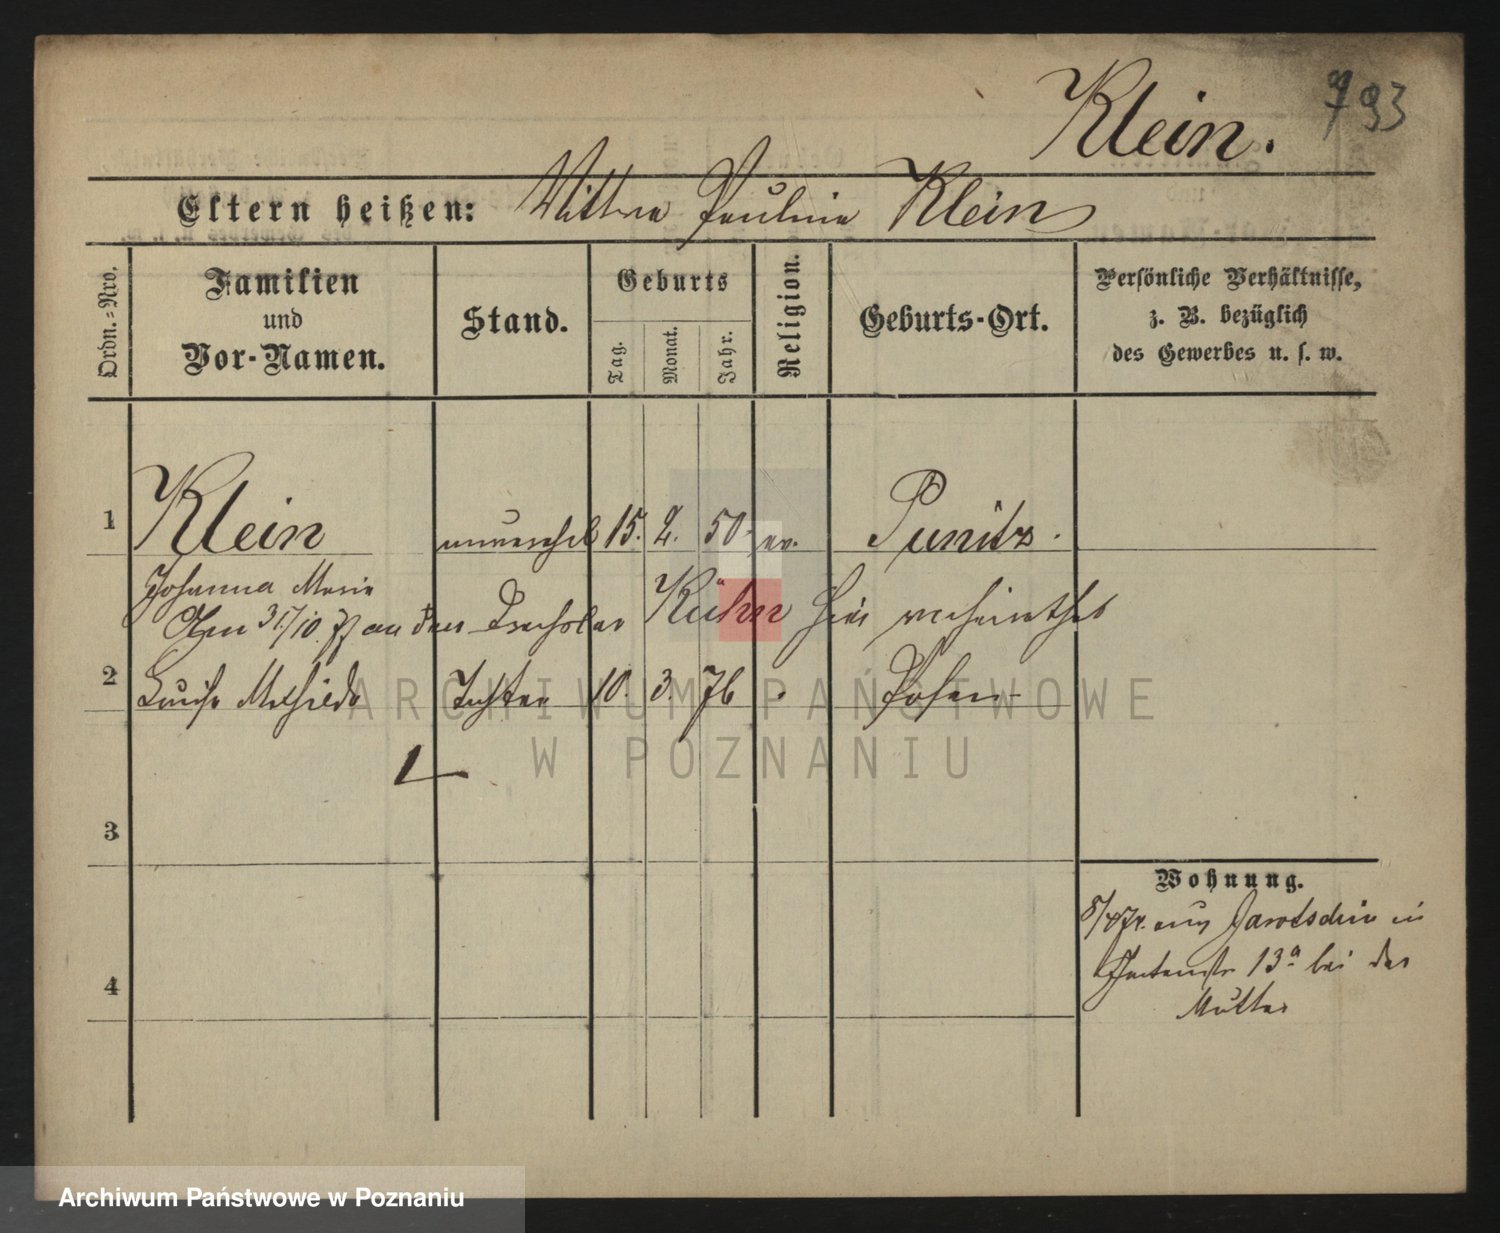 Klein. 793
Eltern heißen: Wittwe Pauline Klein
Ordn.=Nro.
Familien
und
Vor-Namen.
Stand.
Geburts
Tag.
Monat.
Jahr.
Religion.
Geburts-Ort.
Persönliche Verhältnisse,
z. B. bezüglich
des Gewerbes u. s. w.
1 Klein unverehel 15. 2. 50. ev. Punitz.
Johanna Marie
Am 31/10. 77 an den Drechsler Kühn hier verheirathet
2 Luise Mathilde Tochter 10. 3. 76 . Posen
3
4
Wohnung.
aus Jarotschin in
Gartenstr 13a bei der
Mutter
ARCHIWUM PAŃSTWOWE
W POZNANIU
Archiwum Państwowe w Poznaniu